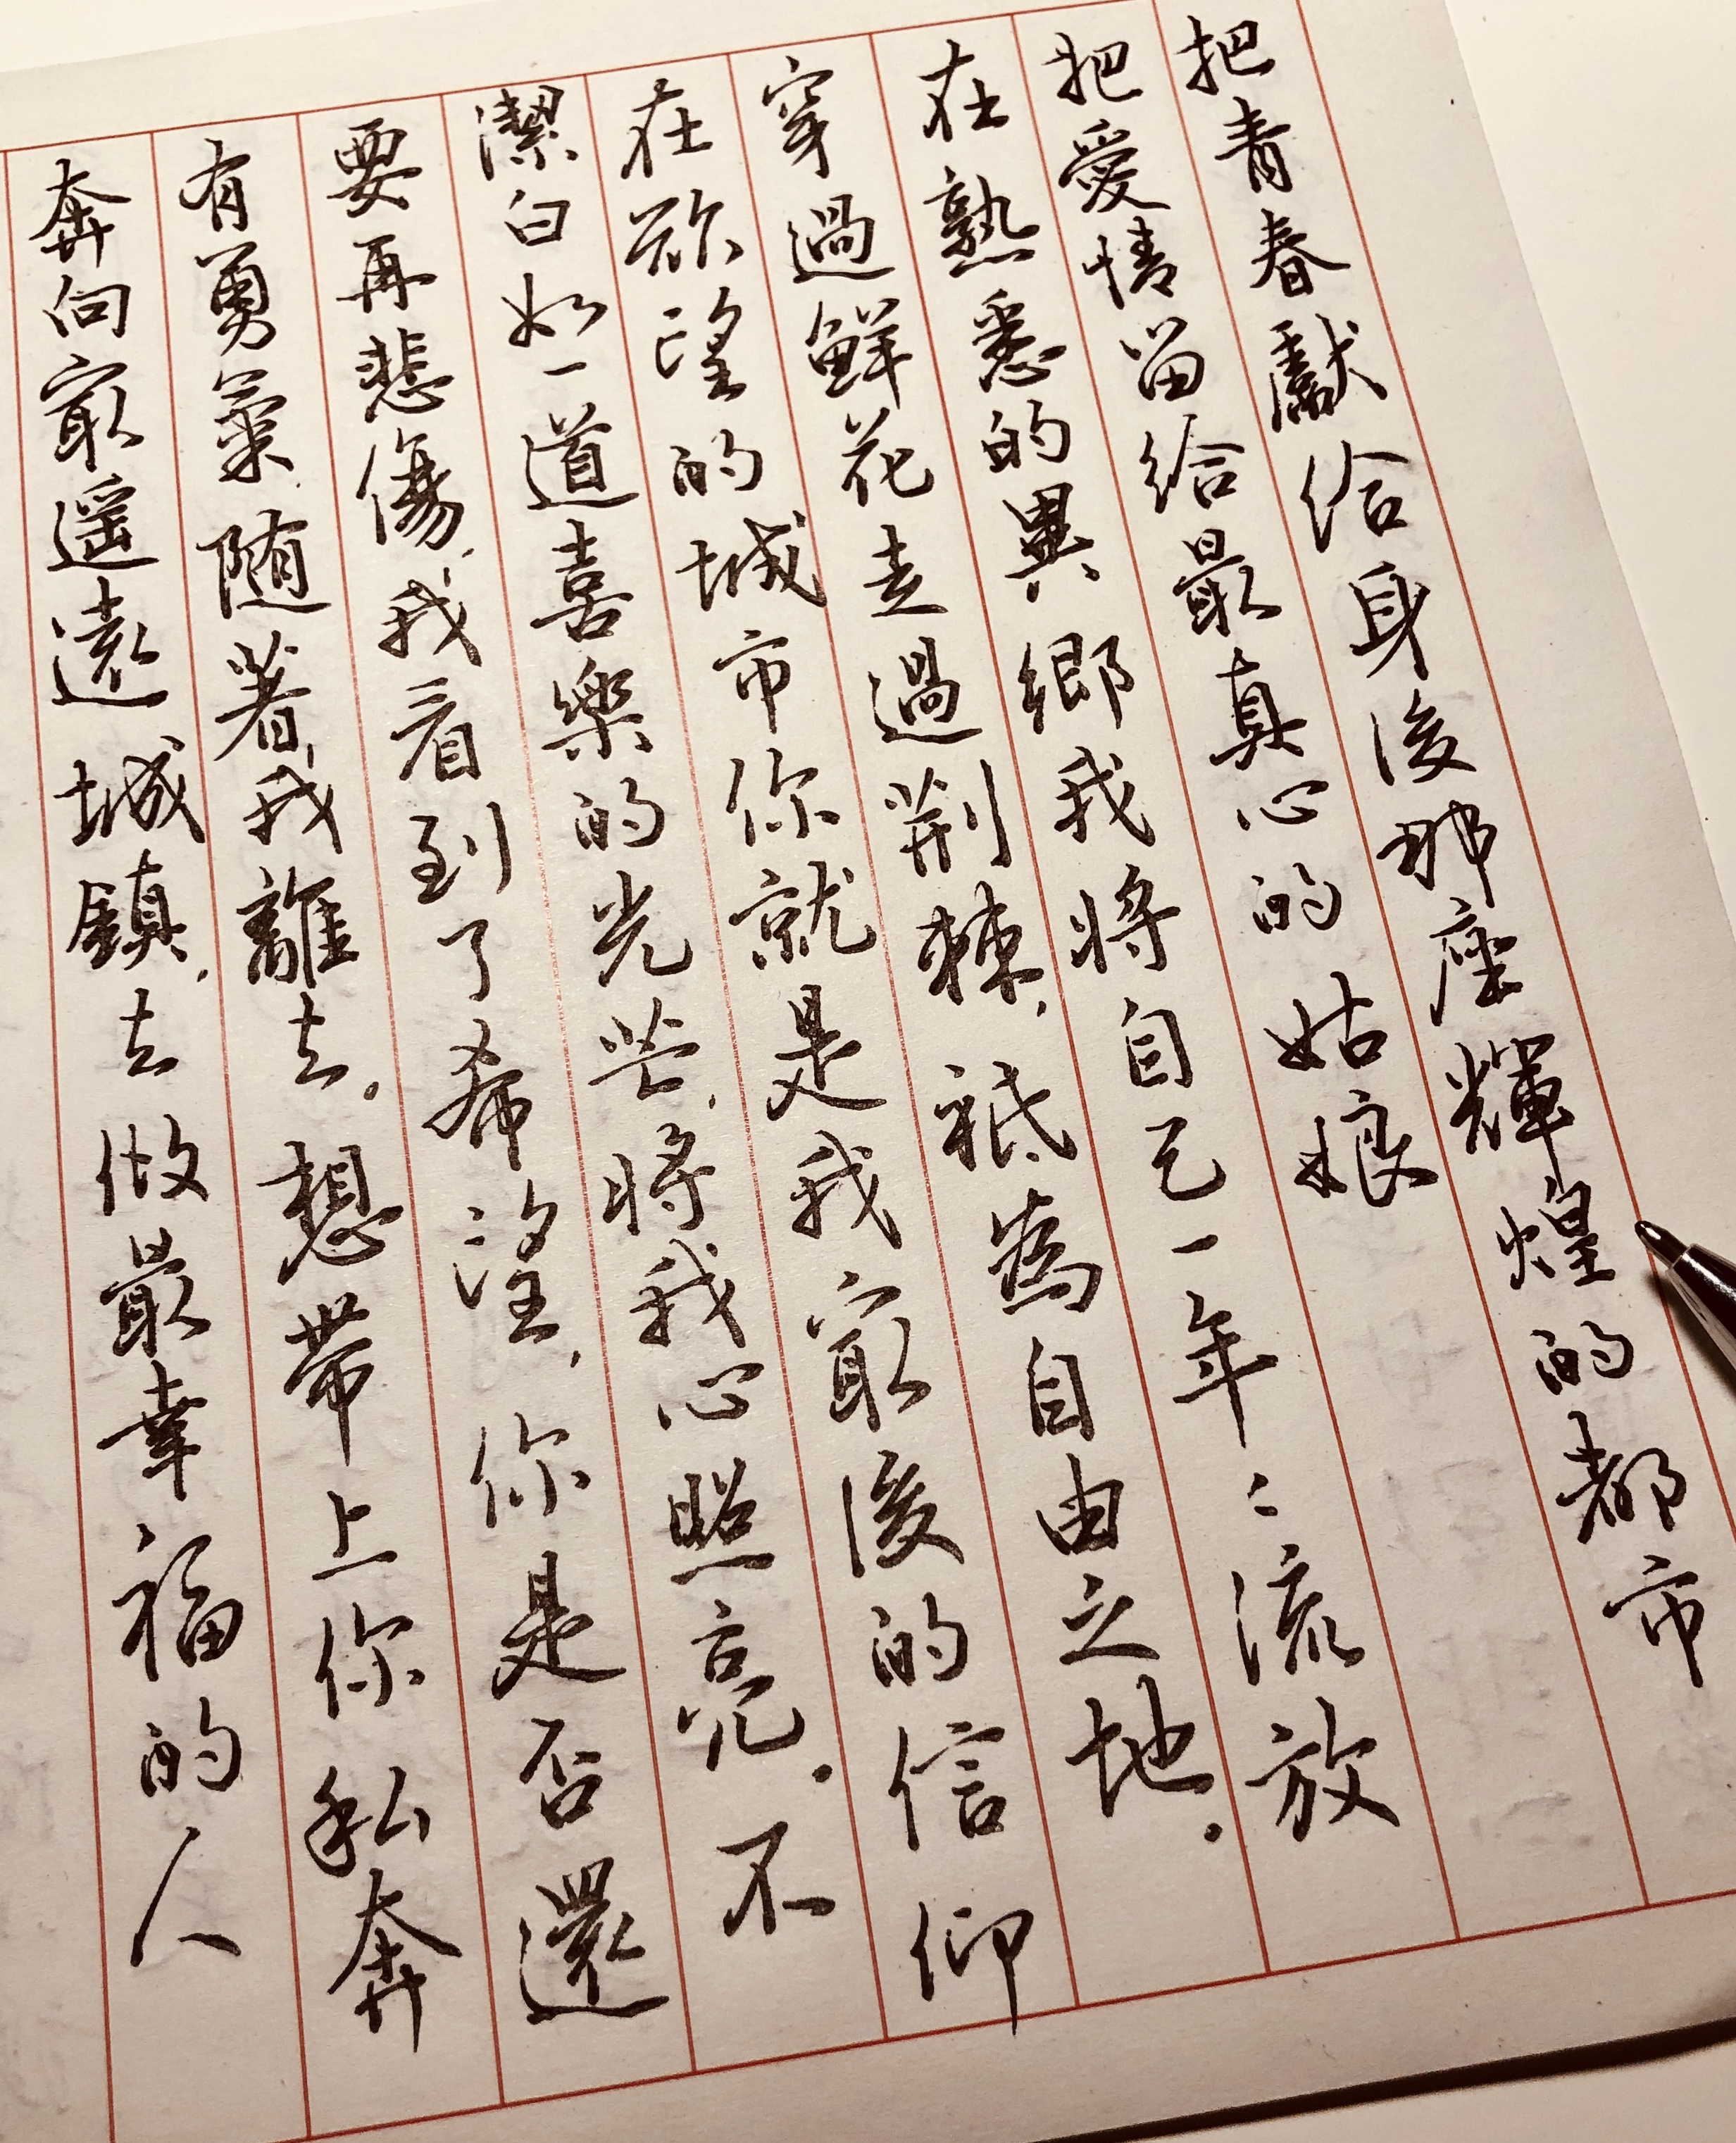 把青春獻给身後那座輝煌的都市
把愛情留給最真心的姑娘
在熟悉的異鄉我将自己一年〻流放
穿過鮮花走過荆棘，祇為自由之地。
在欲望的城市你就是我最後的信仰
潔白如一道喜樂的光芒，将我心照亮。不
要再悲傷，我看到了希望，你是否還
有勇氣，随著我離去。想带上你私奔
奔向最遥遠城鎮，去做最幸福的人